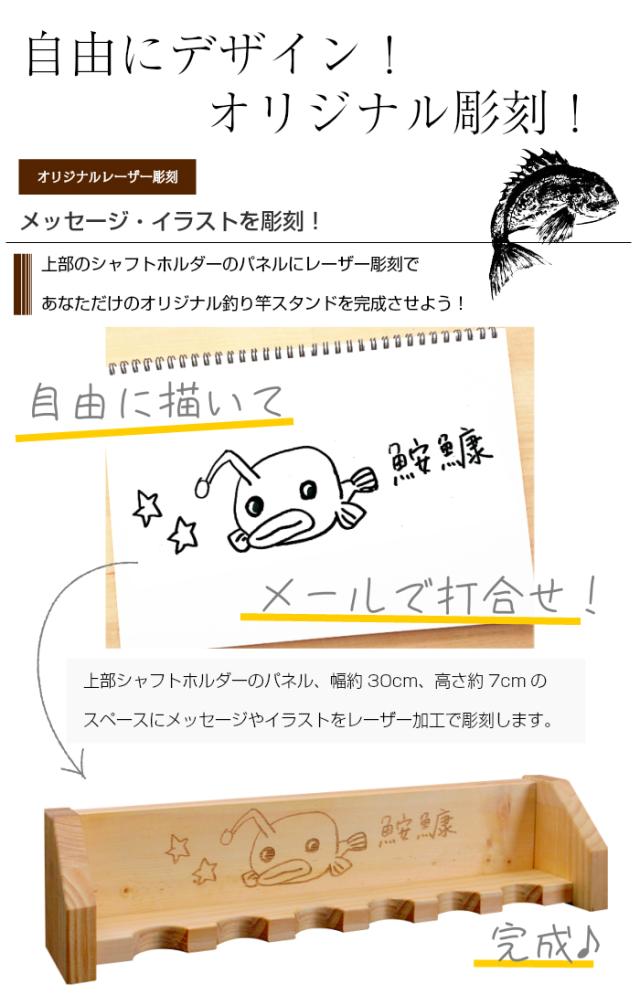 自由にデザイン！
オリジナル彫刻！
オリジナルレーザー彫刻
メッセージ・イラストを彫刻！
上部のシャフトホルダーのパネルにレーザー彫刻で
あなただけのオリジナル釣り竿スタンドを完成させよう！
自由に描いて
鮟鱇
メールで打合せ！
上部シャフトホルダーのパネル、幅約30cm、高さ約7cmの
スペースにメッセージやイラストをレーザー加工で彫刻します。
鮟鱇
完成♪